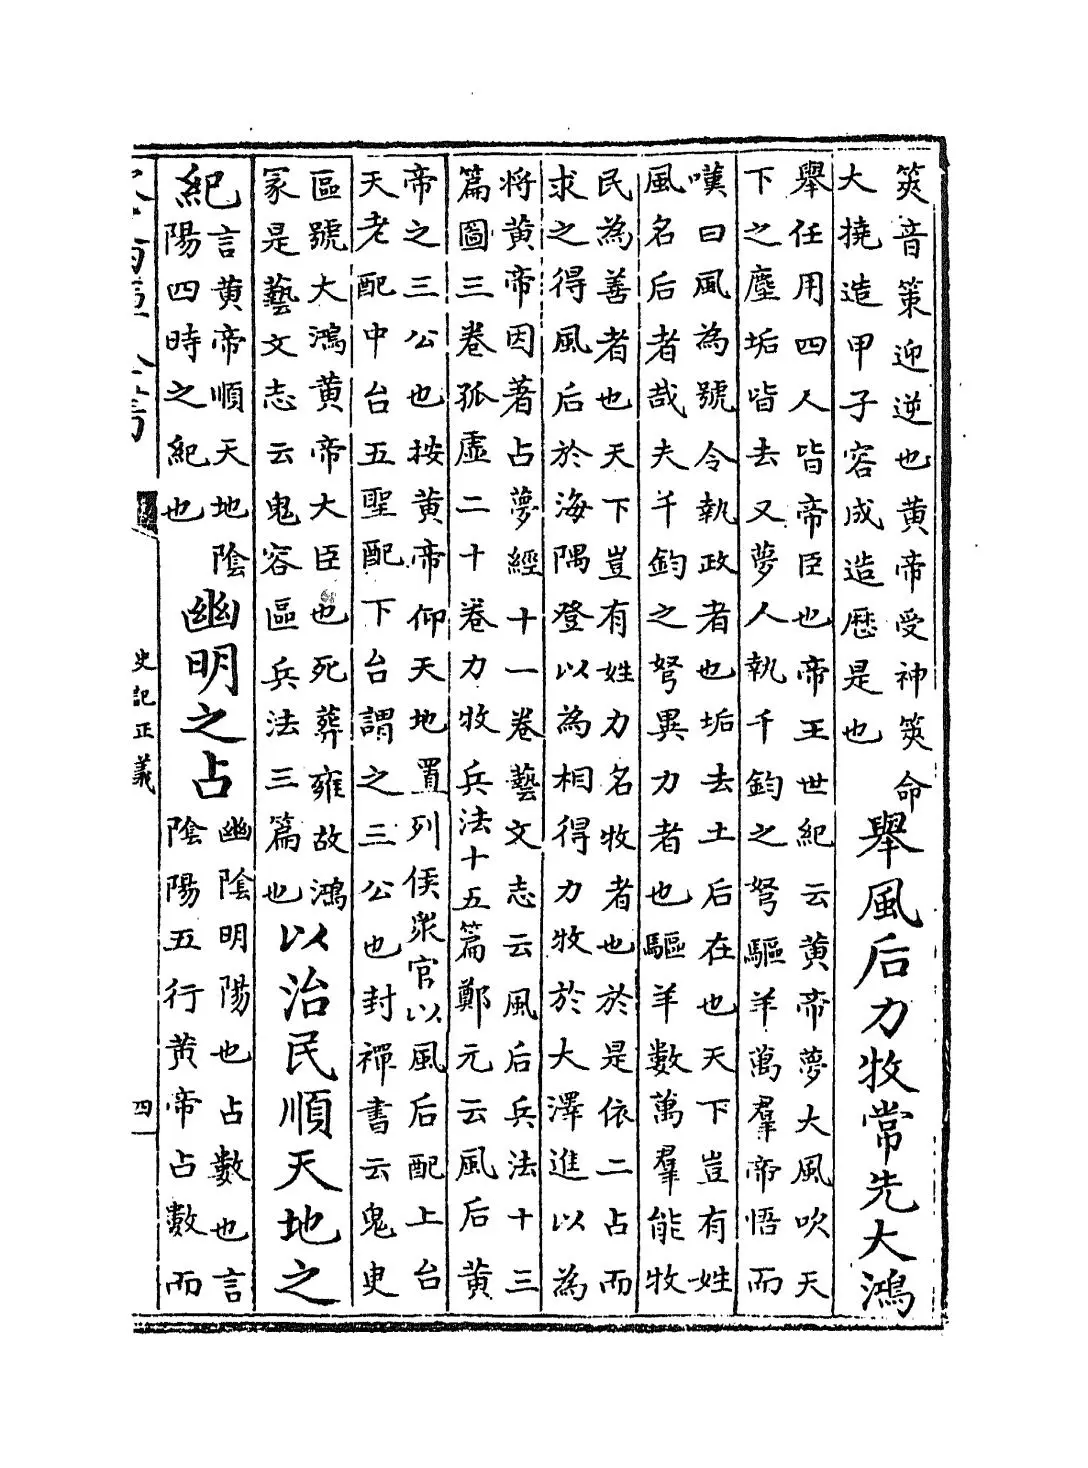 筴音策迎逆也黄帝受神筴命
大撓造甲子容成造厯是也
舉風后力牧常先大鴻
舉任用四人皆帝臣也帝王世紀云黄帝夢大風吹天
下之塵垢皆去又夢人執千鈞之弩驅羊萬羣帝悟而
嘆曰風為號令執政者也垢去土后在也天下豈有姓
風名后者哉夫千鈞之弩異力者也驅羊數萬羣能牧
民為善者也天下豈有姓力名牧者也於是依二占而
求之得風后於海隅登以為相得力牧於大澤進以為
将黄帝因著占夢經十一巻藝文志云風后兵法十三
篇圖三巻孤虛二十巻力牧兵法十五篇鄭元云風后黄
帝之三公也按黄帝仰天地置列侯衆官以風后配上台
天老配中台五聖配下台謂之三公也封禪書云鬼臾
區號大鴻黄帝大臣也死葬雍故鴻
冡是藝文志云鬼容區兵法三篇也
以治民順天地之
紀
言黄帝順天地陰
陽四時之紀也
幽明之占
幽陰明陽也占數也言
陰陽五行黄帝占數而
史記正義
四